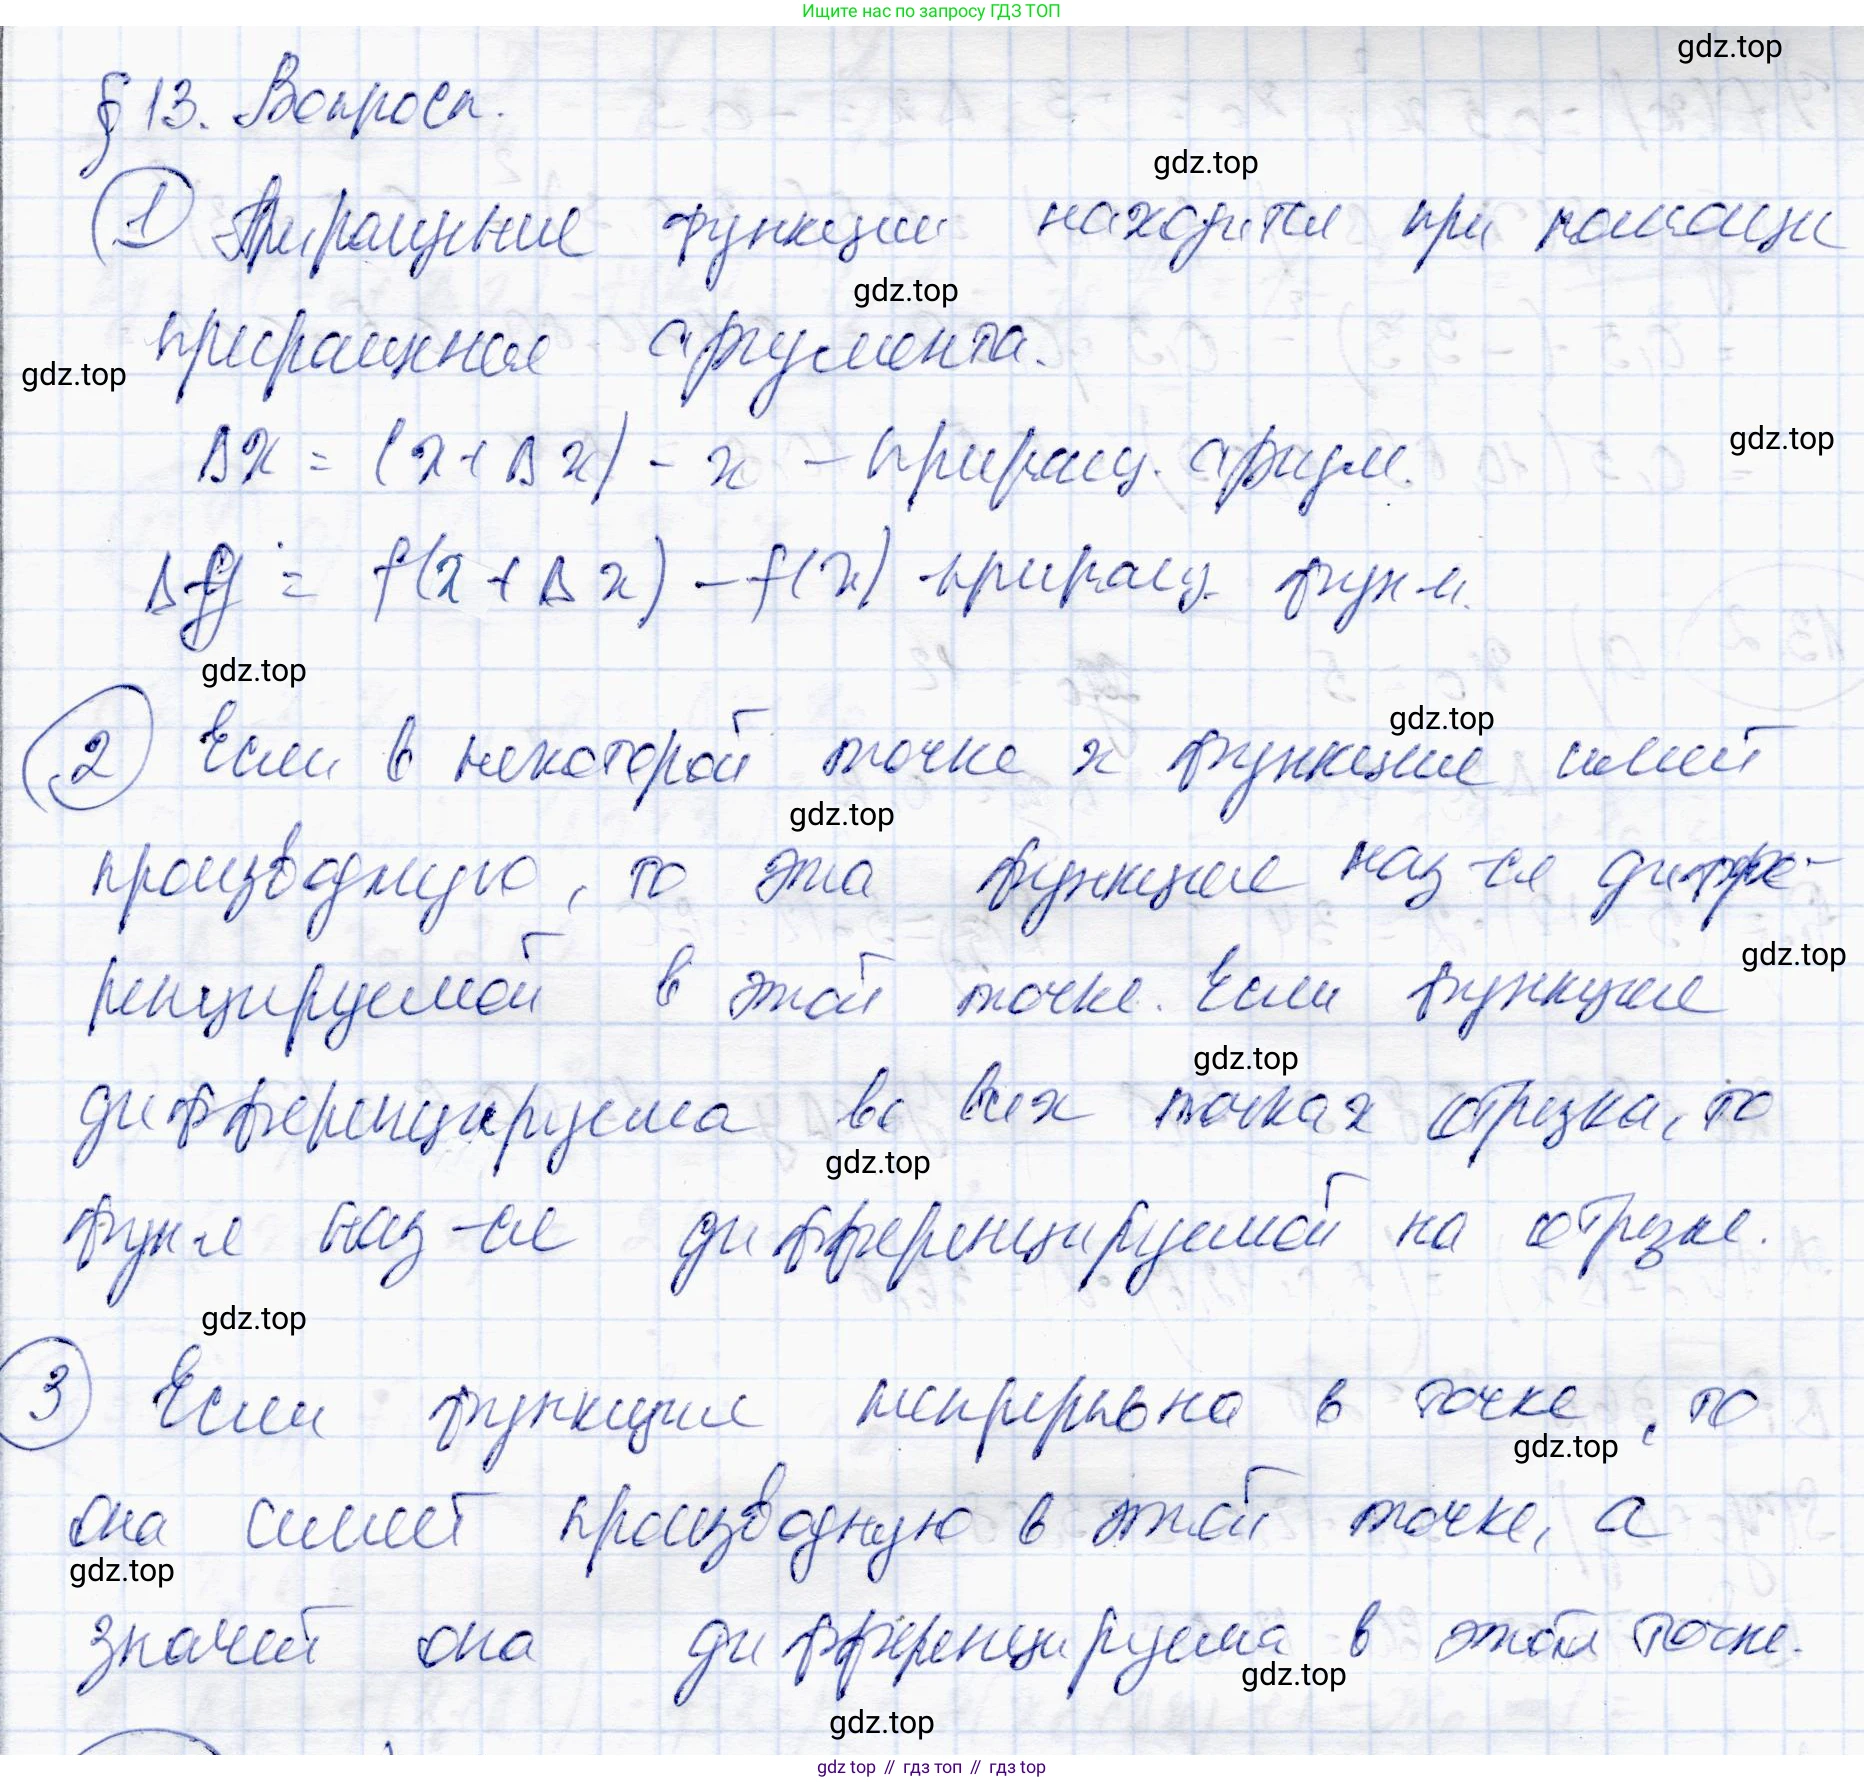 Ищите нас по запросу ГДЗ ТОП
gdz.top
§ 13. Вопросы.
gdz.top
1 Приращение функции находится при помощи
gdz.top
приращения аргумента.
gdz.top
Δx = (x + Δx) - x - приращ. аргум.
gdz.top
Δy = f(x + Δx) - f(x) - приращ. функ-и.
gdz.top
gdz.top
2 Если в некоторой точке x функция имеет
gdz.top
производную, то эта функция наз-ся диффе-
gdz.top
ренцируемой в этой точке. Если функция
gdz.top
дифференцируема во всех точках отрезка, то
gdz.top
функ-я наз-ся дифференцируемой на отрезке.
gdz.top
3 Если функция непрерывна в точке, то
gdz.top
она имеет производную в этой точке, а
gdz.top
значит она дифференцируема в этой точке.
gdz.top
gdz.top
gdz top // гдз топ // гдз top